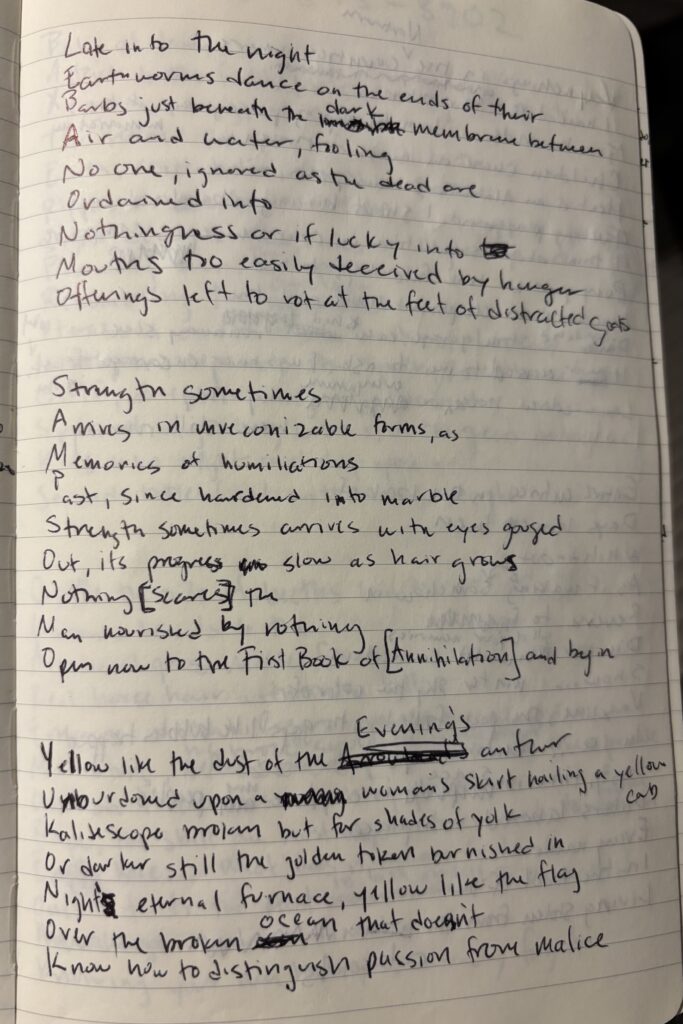 Late into the night
Earthworms dance on the ends of their
Barbs just beneath the dark membrane between
Air and water, fooling
No one, ignored as the dead are
Ordained into
Nothingness or if lucky into
Mouths too easily deceived by hunger
Offerings left to rot at the feet of distracted gods
Strength sometimes
Arrives in unreconizable forms, as
Memories of humiliations
Past, since hardened into marble
Strength sometimes arrives with eyes gouged
Out, its progress slow as hair grows
Nothing [scares] the
Man nourished by nothing
Open now to the First Book of [Annihilation] and begin
Yellow like the dust of the Evening's anther
Unburdoned upon a woman's skirt hailing a yellow cab
Kaliedescope broken but for shades of yolk
Or darker still the golden token burnished in
Night's eternal furnace, yellow like the flag
Over the broken ocean that doesn't
Know how to distinguish passion from malice